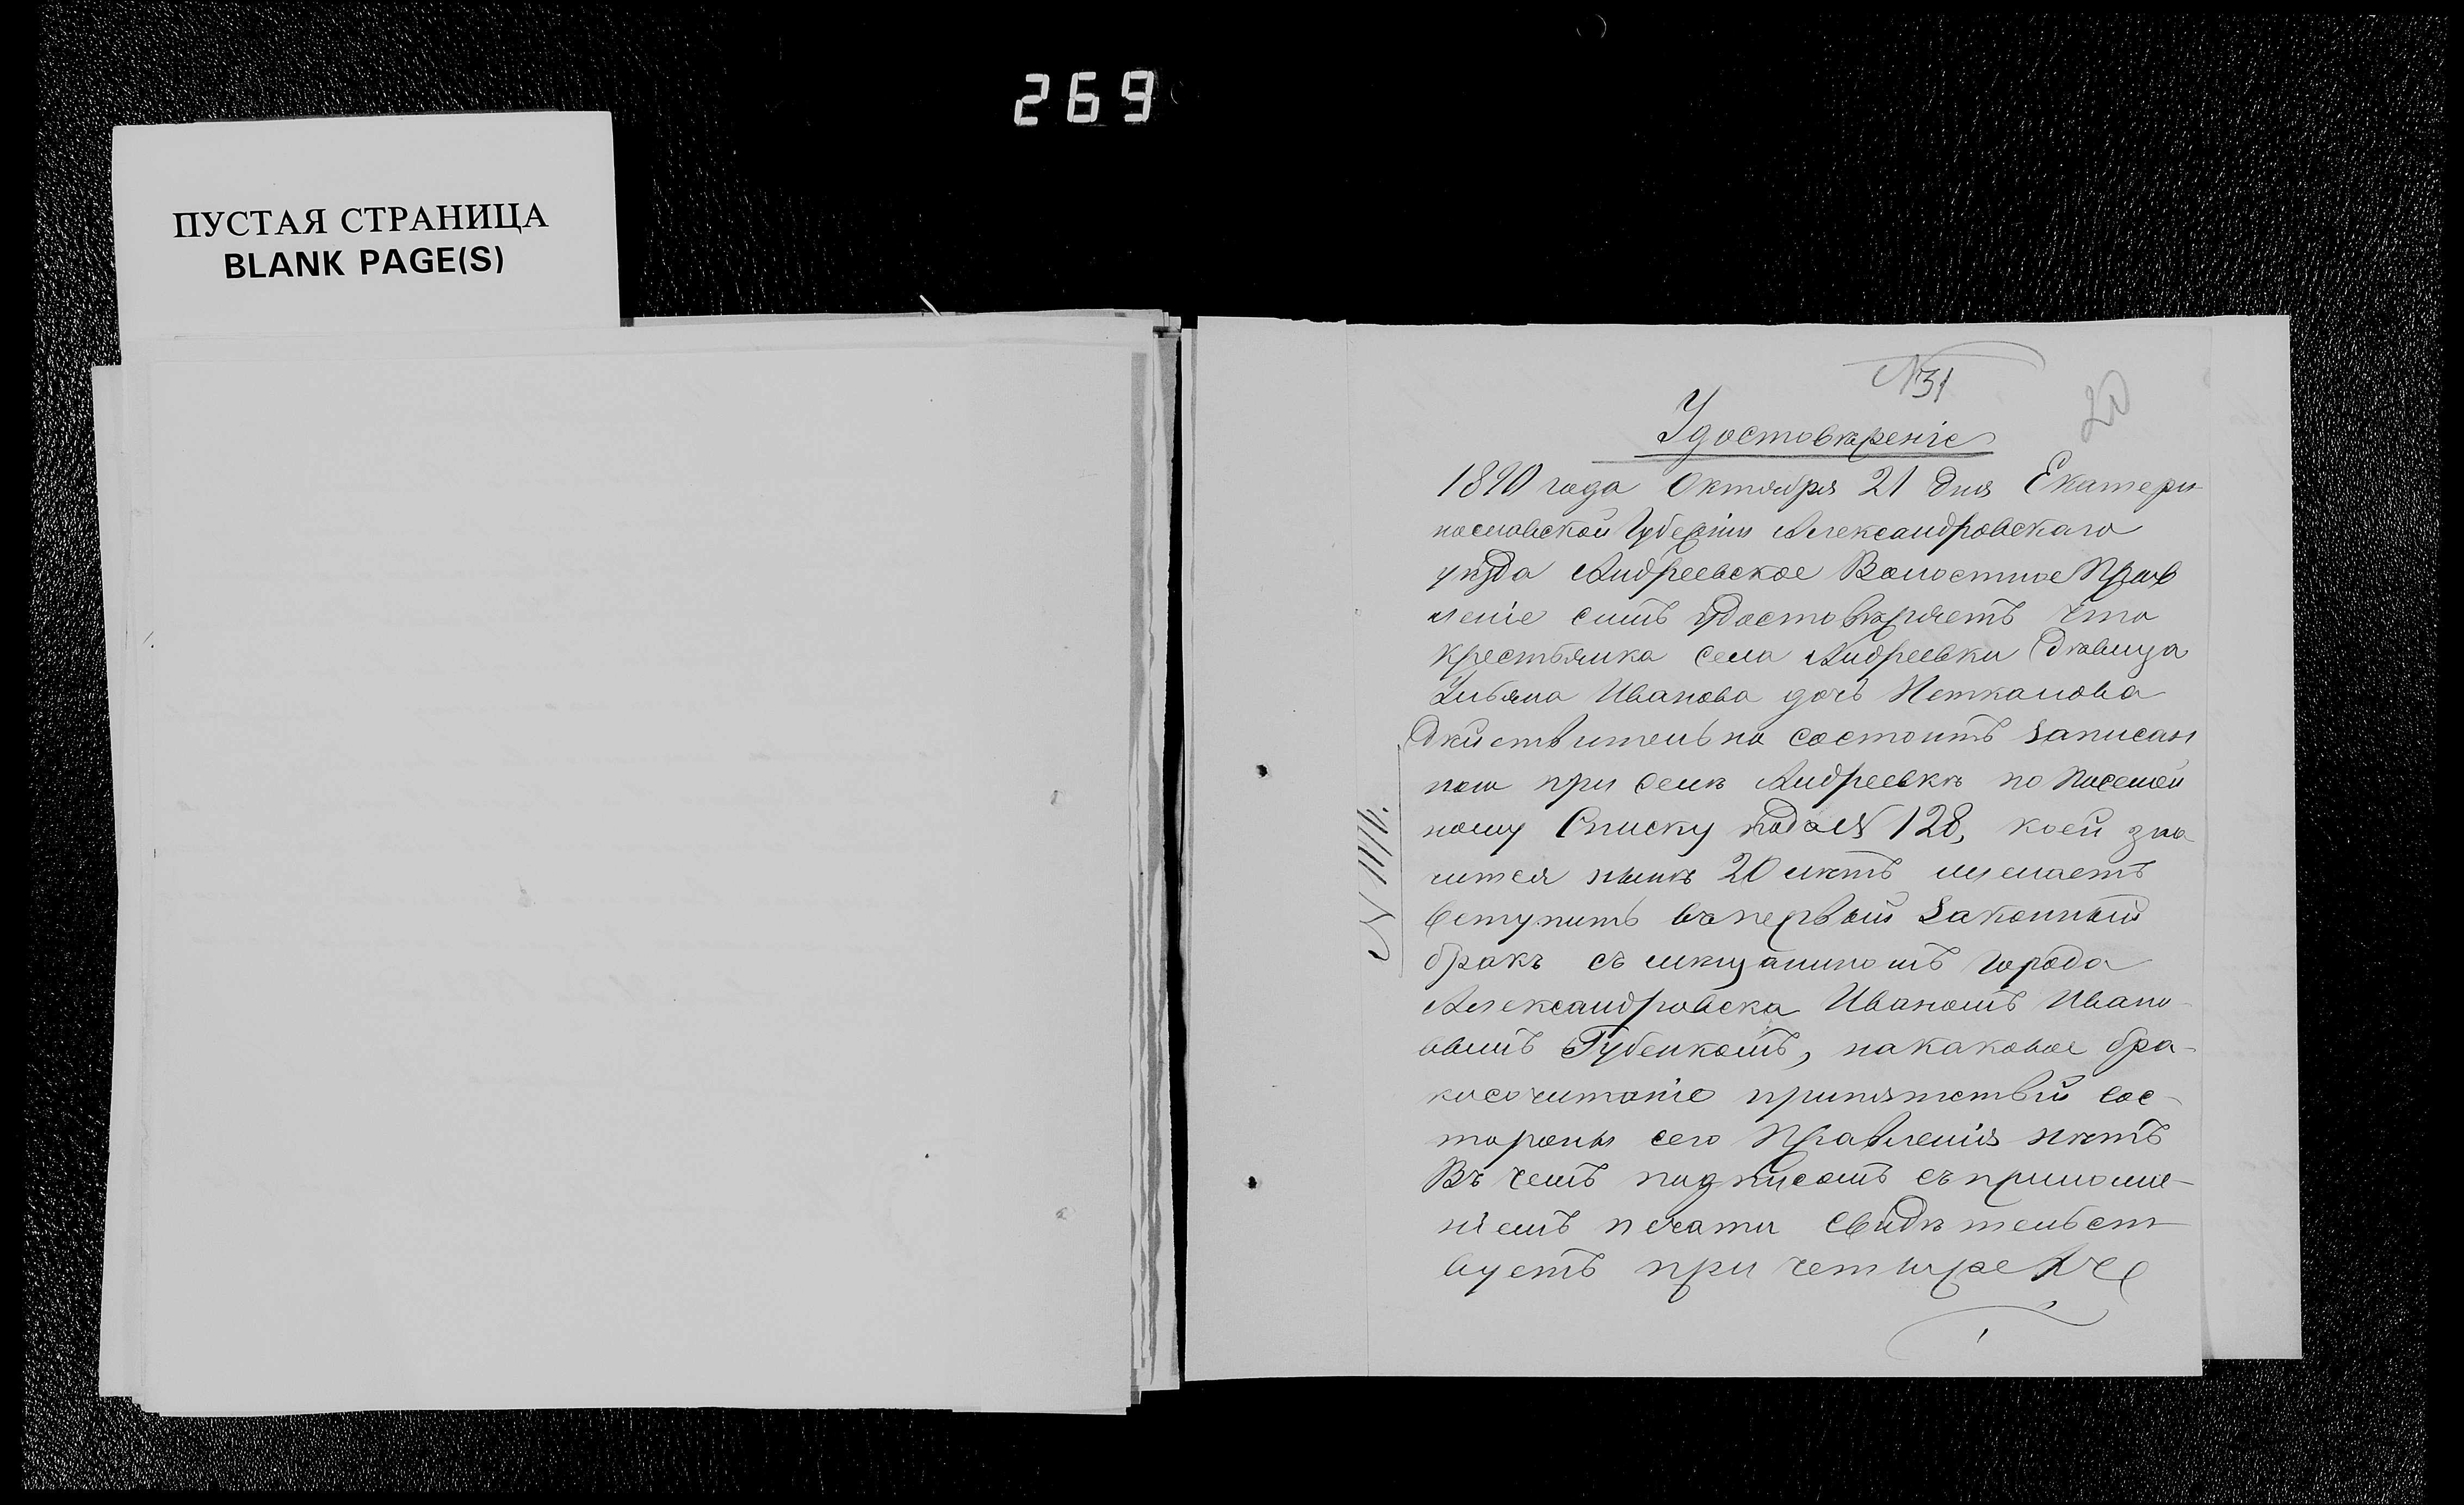 269
ПУСТАЯ СТРАНИЦА
BLANK PAGE(S)
№31
20
Удостовѣреніе
1890 года Октября 21 дня Екатери
нославской Губерніи Александровскаго
уѣзда Андреевское Волостное Прав
леніе симъ удостовѣряетъ что
крестьянка села Андреевки дѣвица
Ульяна Иванова дочь Неткалова
дѣйствительно состоитъ записан
ною при селѣ Андреевкѣ по посемей
ному Списку подъ № 128, коей зна
чится нынѣ 20 лѣтъ желаетъ
вступить въ первый законный
бракъ съ мѣщаниномъ города
Александровска Иваномъ Ивано-
вымъ Губенкомъ, накаковое бра-
косочитаніе припятствій сос-
тороны сего Правленія нѣтъ
Въ чемъ подписомъ съ приложе-
ніемъ печати свидѣтельст
вуетъ при четыре